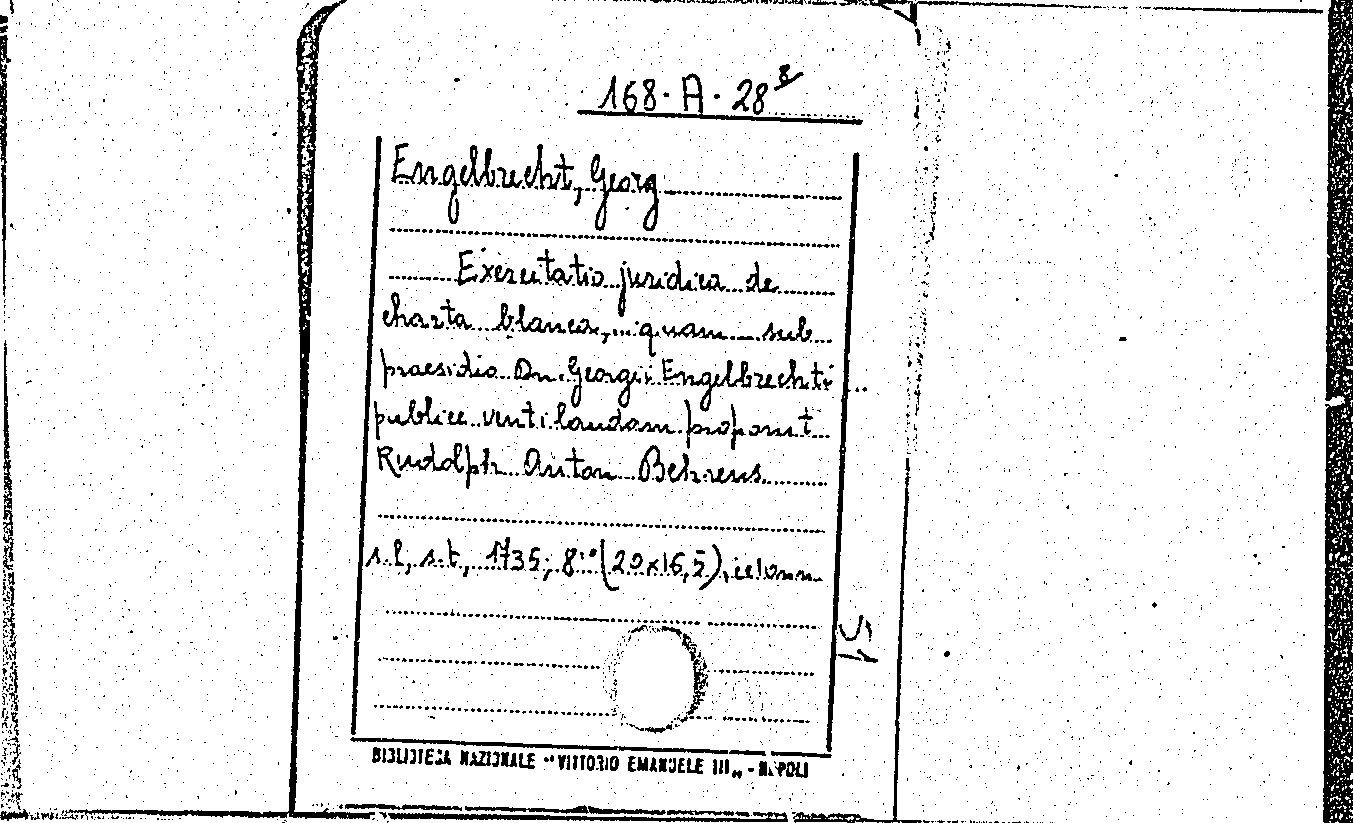 168 · A · 28 8
Engelbrecht, Georg
Exercitatio juridica de
charta blanca, ... quam sub
praesidio Dn. Georgii Engelbrechti ...
publice ventilandam proponit
Rudolph Anton Behrens
s.l., s.t., 1735, 8.° (20x16,5),
51
BIBLIOTECA NAZIONALE "VITTORIO EMANUELE III„ - NAPOLI